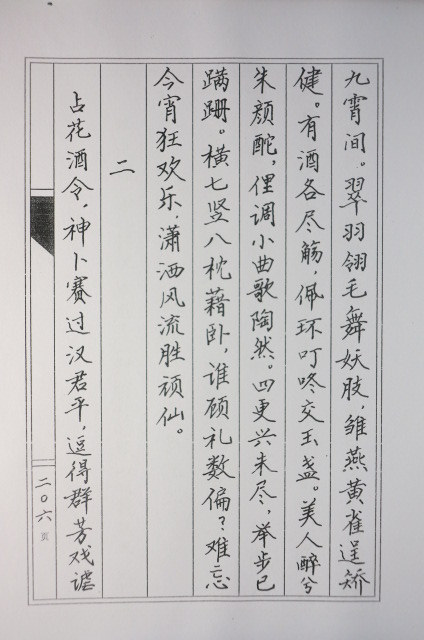 九霄间。翠羽翎毛舞妖肢，雏燕黄雀逞矫
健。有酒各尽觞，佩环叮咚交玉盏。美人醉兮
朱颜酡，俚调小曲歌陶然。四更兴未尽，举步已
蹒跚。横七竖八枕藉卧，谁顾礼数偏？难忘
今宵狂欢乐，潇洒风流胜顽仙。
二
占花酒令，神卜赛过汉君平，逗得群芳戏谑
二〇六页